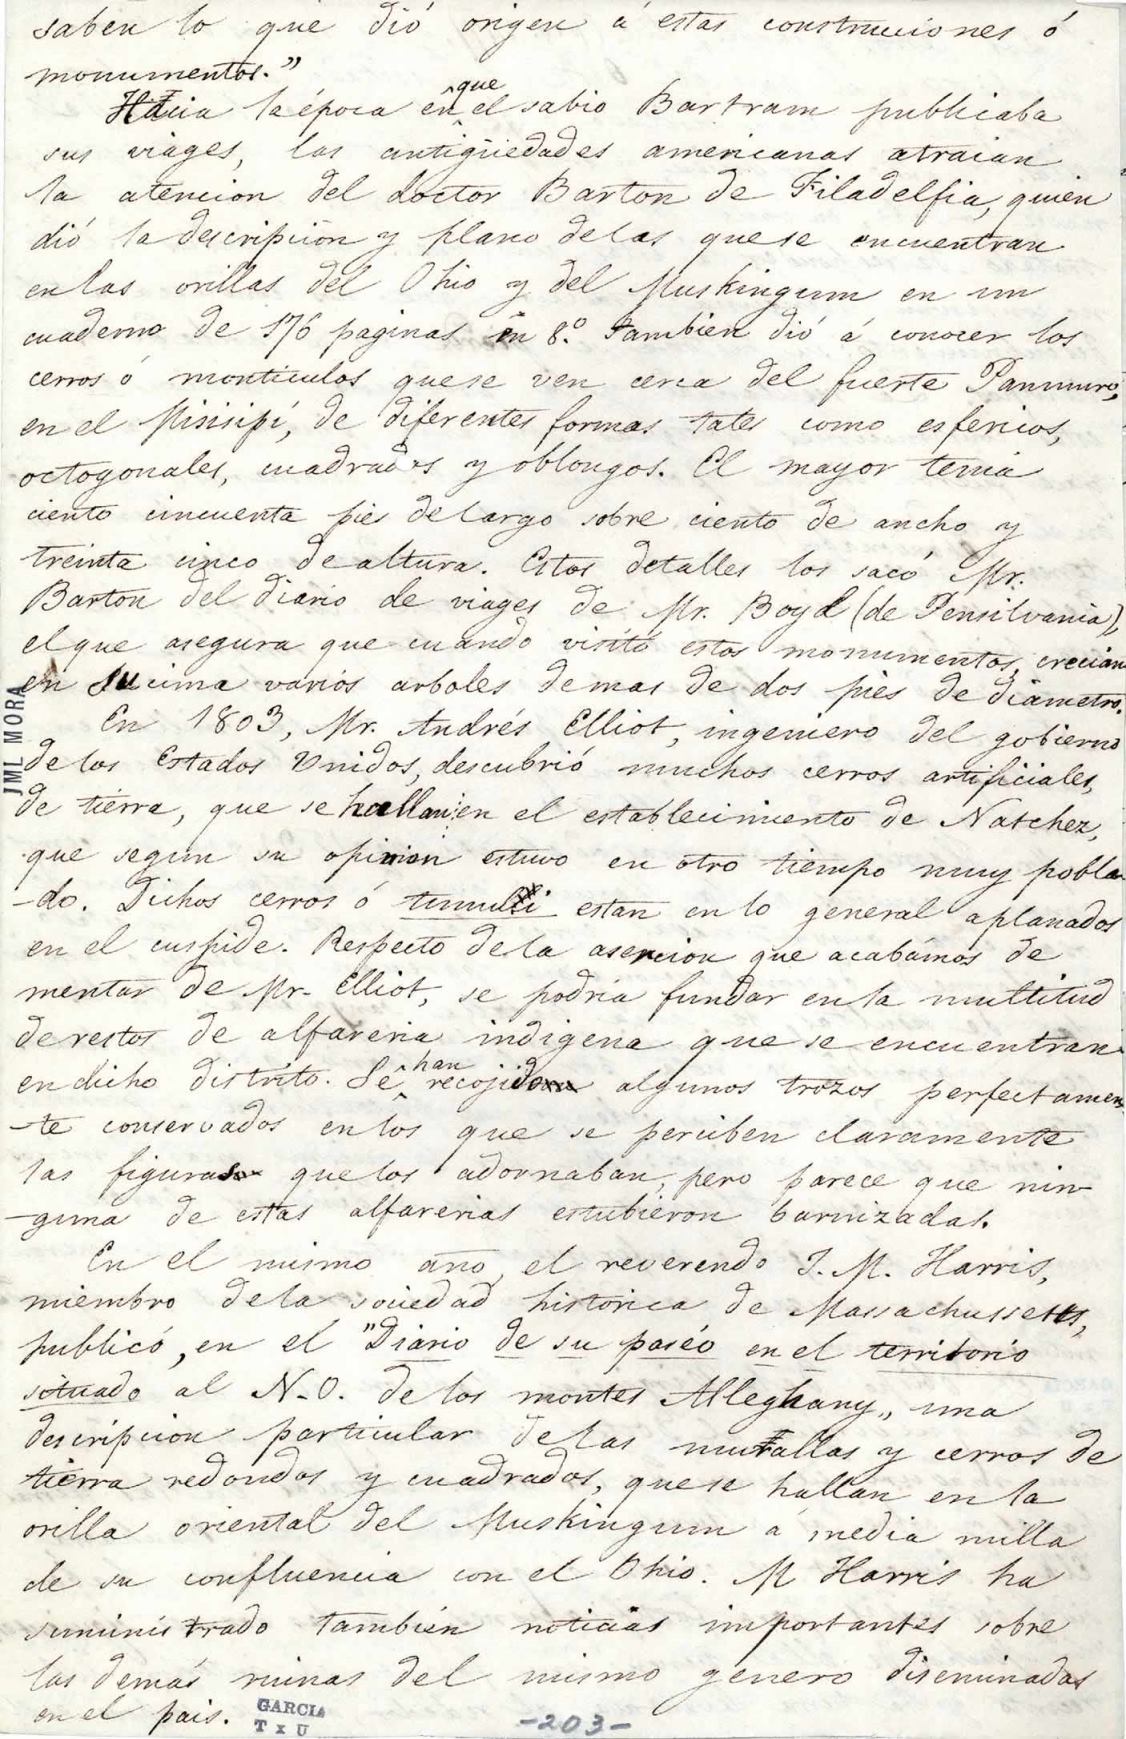 saben lo que dió origen á estas construcciones ó
monumentos."
Hácia la época en que el sabio Bartram publicaba
sus viages, las antigüedades americanas atraian
la atencion del doctor Barton de Filadelfia, quien
dió la descripcion y plano delas quese encuentran
enlas orillas del Ohio y del Muskingum en un
cuaderno de 176 paginas in 8º. Tambien dió á conocer los
cerros ó monticulos quese ven cerca del fuerte Panmure,
en el Misisipí, de diferentes formas tales como esfericos,
octogonales, cuadrados y oblongos. El mayor tenia
ciento cincuenta pies delargo sobre ciento de ancho y
treinta cinco dealtura. Estos detalles los sacó Mr.
Barton del diario de viages de Mr. Boyd (de Pensilvania),
elque asegura que cuando visitó estos monumentos, crecian
en su cima varios arboles demas de dos pies de diametro.
JML MORA
En 1803, Mr. Andrés Elliot, ingeniero del gobierno
delos Estados Unidos, descubrió muchos cerros artificiales,
de tierra, que se hallan en el establecimiento de Natchez,
que segun su opinion estuvo en otro tiempo muy pobla-
-do. Dichos cerros ó tumuli estan en lo general aplanados
en el cuspide. Respecto dela asercion que acabámos de
mentar de Mr. Elliot, se podria fundar enla multitud
derestos de alfareria indigena que se encuentran
endicho distrito. Se han recojido algunos trozos perfectamen-
-te conservados enlos que se perciben claramente
las figuras que los adornaban, pero parece que nin-
-guna de estas alfarerias estubieron barnizadas.
En el mismo año, el reverendo T. M. Harris,
miembro dela sociedad historica de Massachussetts,
publicó, en el "Diario de su paséo en el territorio
situado al N.O. de los montes Alleghany,, una
descripcion particular delas murallas y cerros de
tierra redondos y cuadrados, quese hallan enla
orilla oriental del Muskingum á media milla
de su confluencia con el Ohio. M Harris ha
suministrado tambien noticias importantes sobre
las demás ruinas del mismo genero diseminadas
en el pais.
GARCIA
T x U
-203-